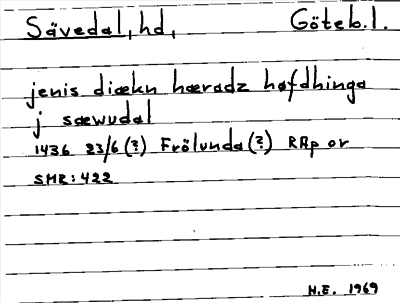 Sävedal, hd, Göteb.l.
jenis diækn hæradz høfdhinga
j sæwudal
1436 23/6(?) Frölunda(?) RAp or
SMR:422
H.E. 1969